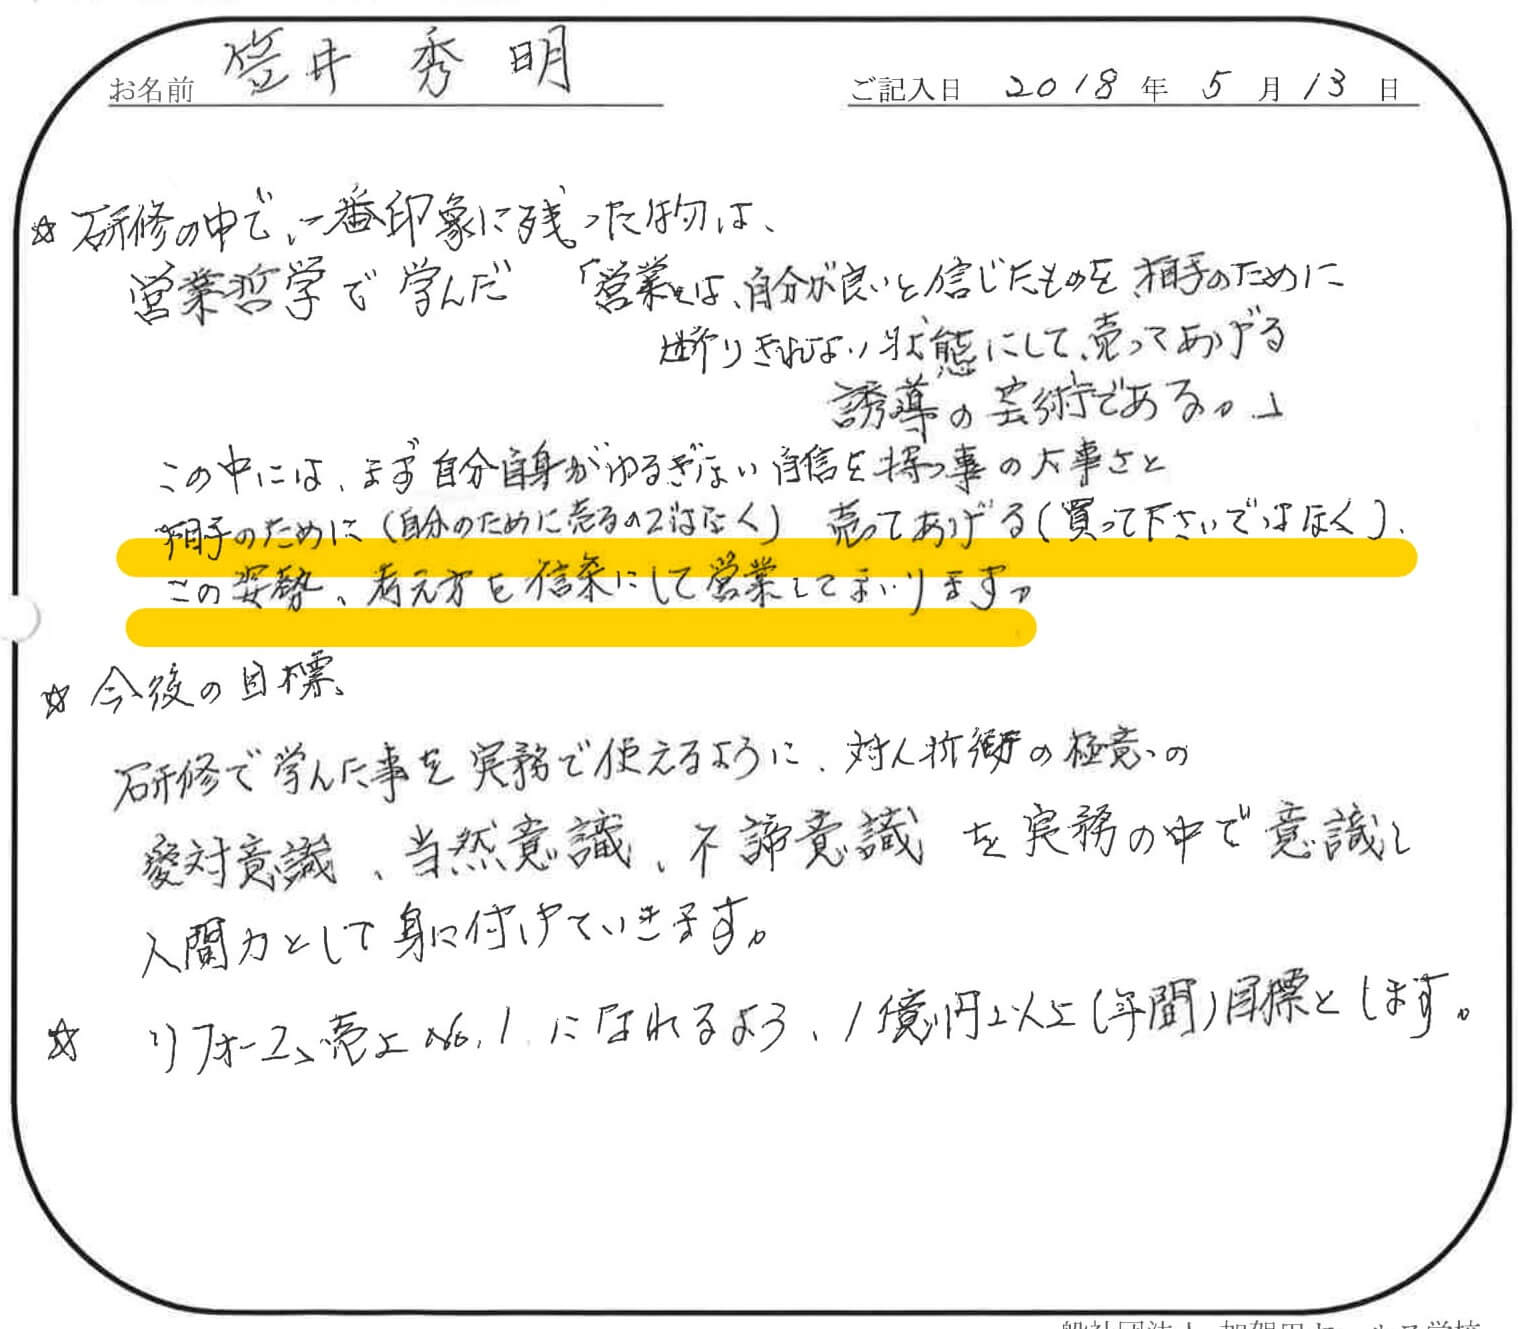 お名前 笠井 秀明 ご記入日 2018年 5月13日
☆ 研修の中で、一番印象に残った物は、
営業哲学で学んだ 「営業とは、自分が良いと信じたものを、相手のために
断りきれない状態にして、売ってあげる
誘導の芸術である。」
この中には、まず自分自身がゆるぎない自信を持つ事の大事さと
相手のために(自分のために売るのではなく) 売ってあげる(買って下さいではなく)、
この姿勢、考え方を信条にして営業してまいります。
☆ 今後の目標、
研修で学んだ事を実務で使えるように、対人折衝の極意の
愛対意識、当然意識、不諦意識を実務の中で意識し
人間力として身に付けていきます。
☆ リフォーム売上No.1になれるよう、1億円以上(年間)目標とします。